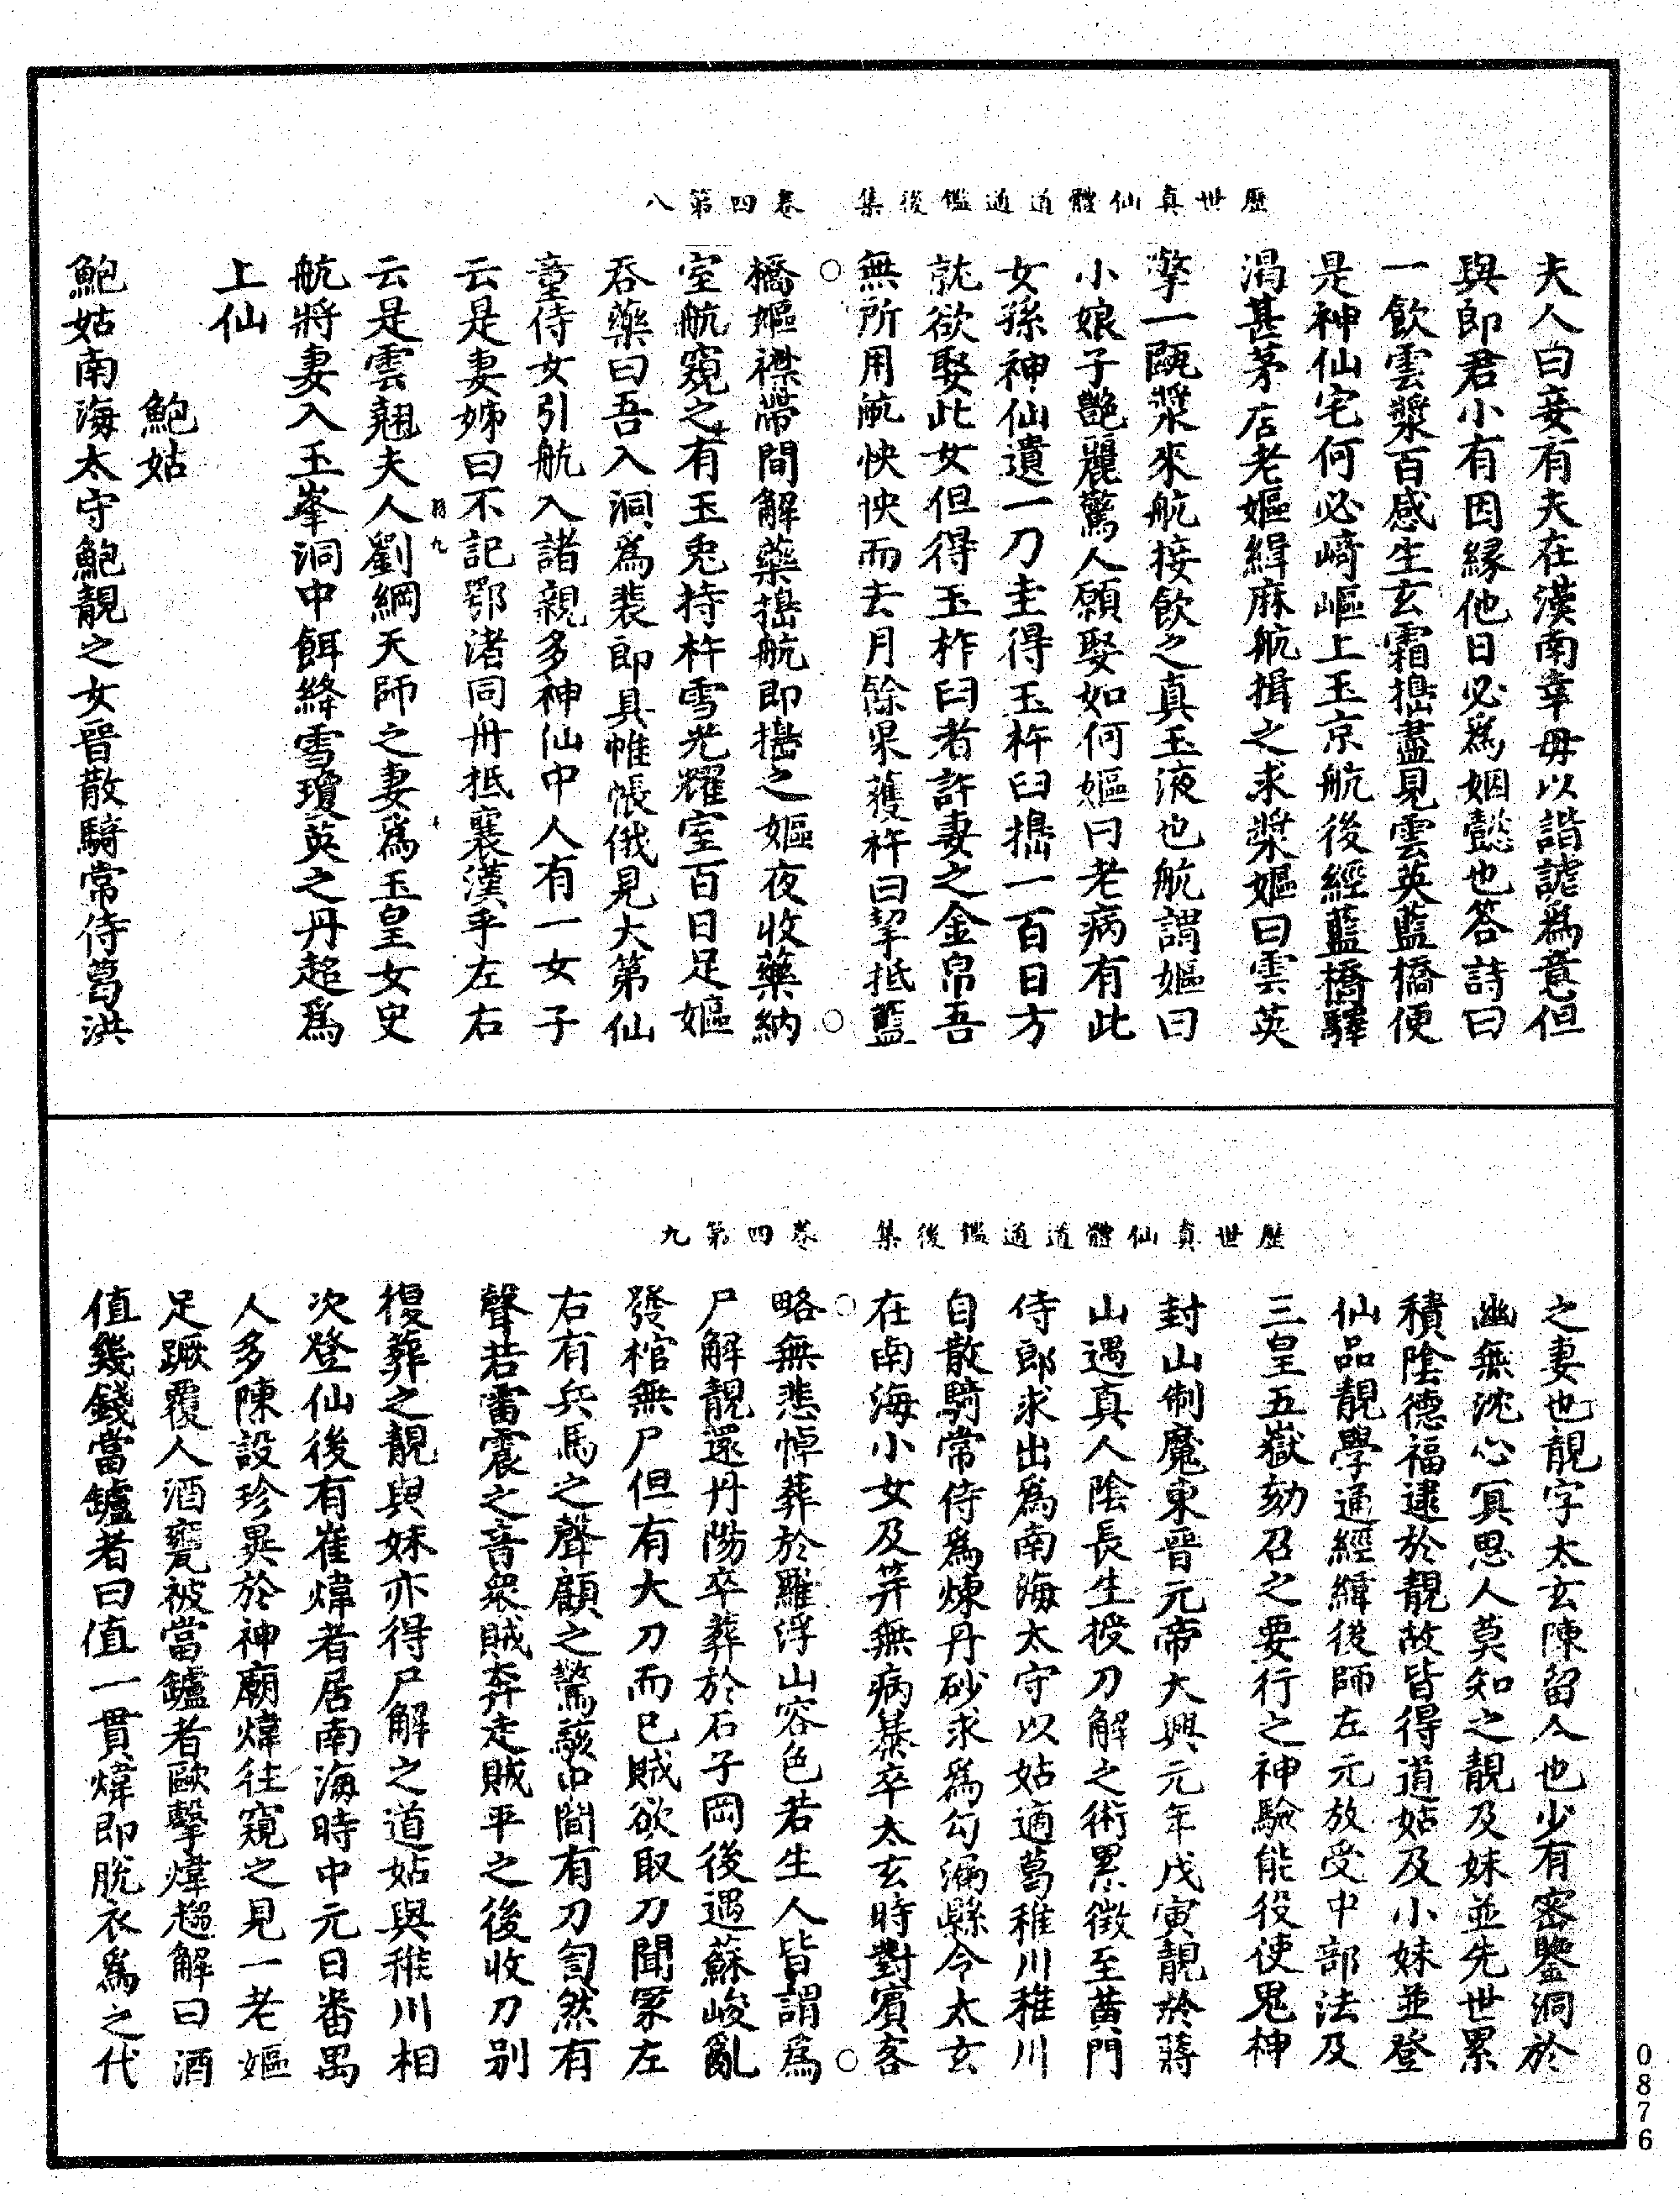 歷世真仙體道通鑑後集　卷四第八
夫人曰妾有夫在漢南幸毋以諧謔為意但
與郎君小有因緣他日必為姻懿也答詩曰
一飲雲漿百感生玄霜搗盡見雲英藍橋便
是神仙宅何必崎嶇上玉京航後經藍橋驛
渴甚茅店老嫗緝麻航揖之求漿嫗曰雲英
擎一甌漿來航接飲之真玉液也航謂嫗曰
小娘子艷麗驚人願娶如何嫗曰老病有此
女孫神仙遺一刀圭得玉杵臼搗一百日方
就欲娶此女但得玉杵臼者許妻之金帛吾
無所用航怏怏而去月餘果獲杵臼挈抵藍
橋嫗襟帶間解藥搗航即搗之嫗夜收藥納
室航窺之有玉兎持杵雪光耀室百日足嫗
吞藥曰吾入洞為裴郎具帷帳俄見大第仙
童侍女引航入諸親多神仙中人有一女子
云是妻姊曰不記鄂渚同舟抵襄漢乎左右
云是雲翹夫人劉綱天師之妻為玉皇女史
航將妻入玉峯洞中餌絳雪瓊英之丹超為
上仙
鮑姑
鮑姑南海太守鮑靚之女晉散騎常侍葛洪
歷世真仙體道通鑑後集　卷四第九
之妻也靚字太玄陳留人也少有密鑒洞於
幽無沈心冥思人莫知之靚及妹並先世累
積陰德福逮於靚故皆得道姑及小妹並登
仙品靚學通經緯後師左元放受中部法及
三皇五嶽劾召之要行之神驗能役使鬼神
封山制魔東晉元帝大興元年戊寅靚於蔣
山遇真人陰長生授刀解之術累徵至黃門
侍郎求出為南海太守以姑適葛稚川稚川
自散騎常侍為煉丹砂求為勾漏縣令太玄
在南海小女及笄無病暴卒太玄時對賓客
略無悲悼葬於羅浮山容色若生人皆謂為
尸解靚還丹陽卒葬於石子岡後遇蘇峻亂
發棺無尸但有大刀而已賊欲取刀聞冢左
右有兵馬之聲顧之驚駭中間有刀訇然有
聲若雷震之音衆賊奔走賊平之後收刀別
復葬之靚與妹亦得尸解之道姑與稚川相
次登仙後有崔煒者居南海時中元日番禺
人多陳設珍異於神廟煒往窺之見一老嫗
足蹶覆人酒甕被當鑪者毆擊煒趨解曰酒
值幾錢當鑪者曰值一貫煒即脫衣為之代
0876